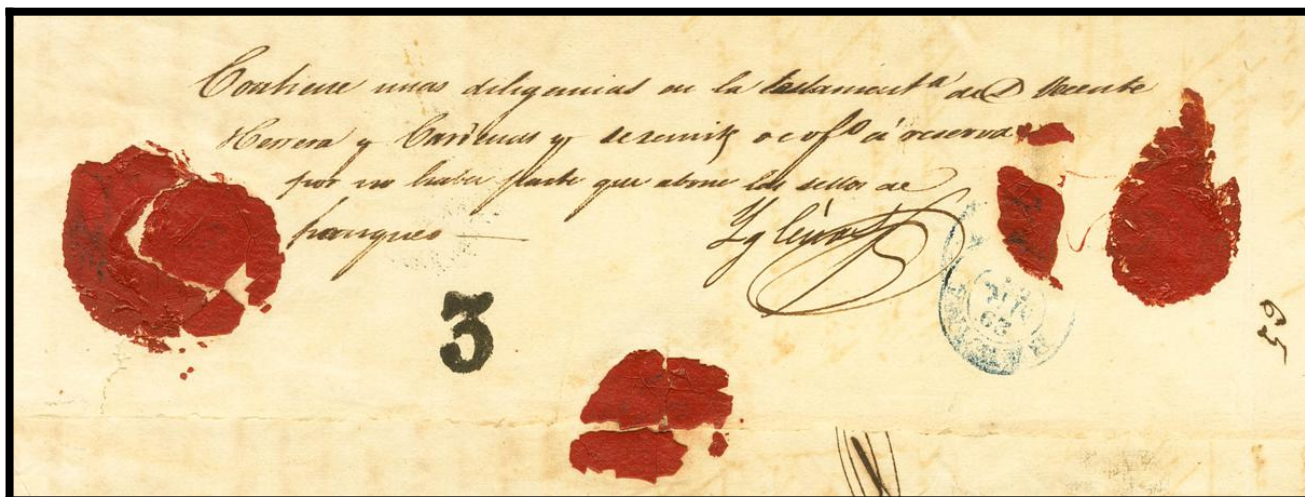 Contiene unas diligencias en la testamentª de D Vicente
Herrera y Cardenas y se remite de ofº á reserva
por no haber parte que abone los sellos de
franqueo
Yglesias
3
63
59